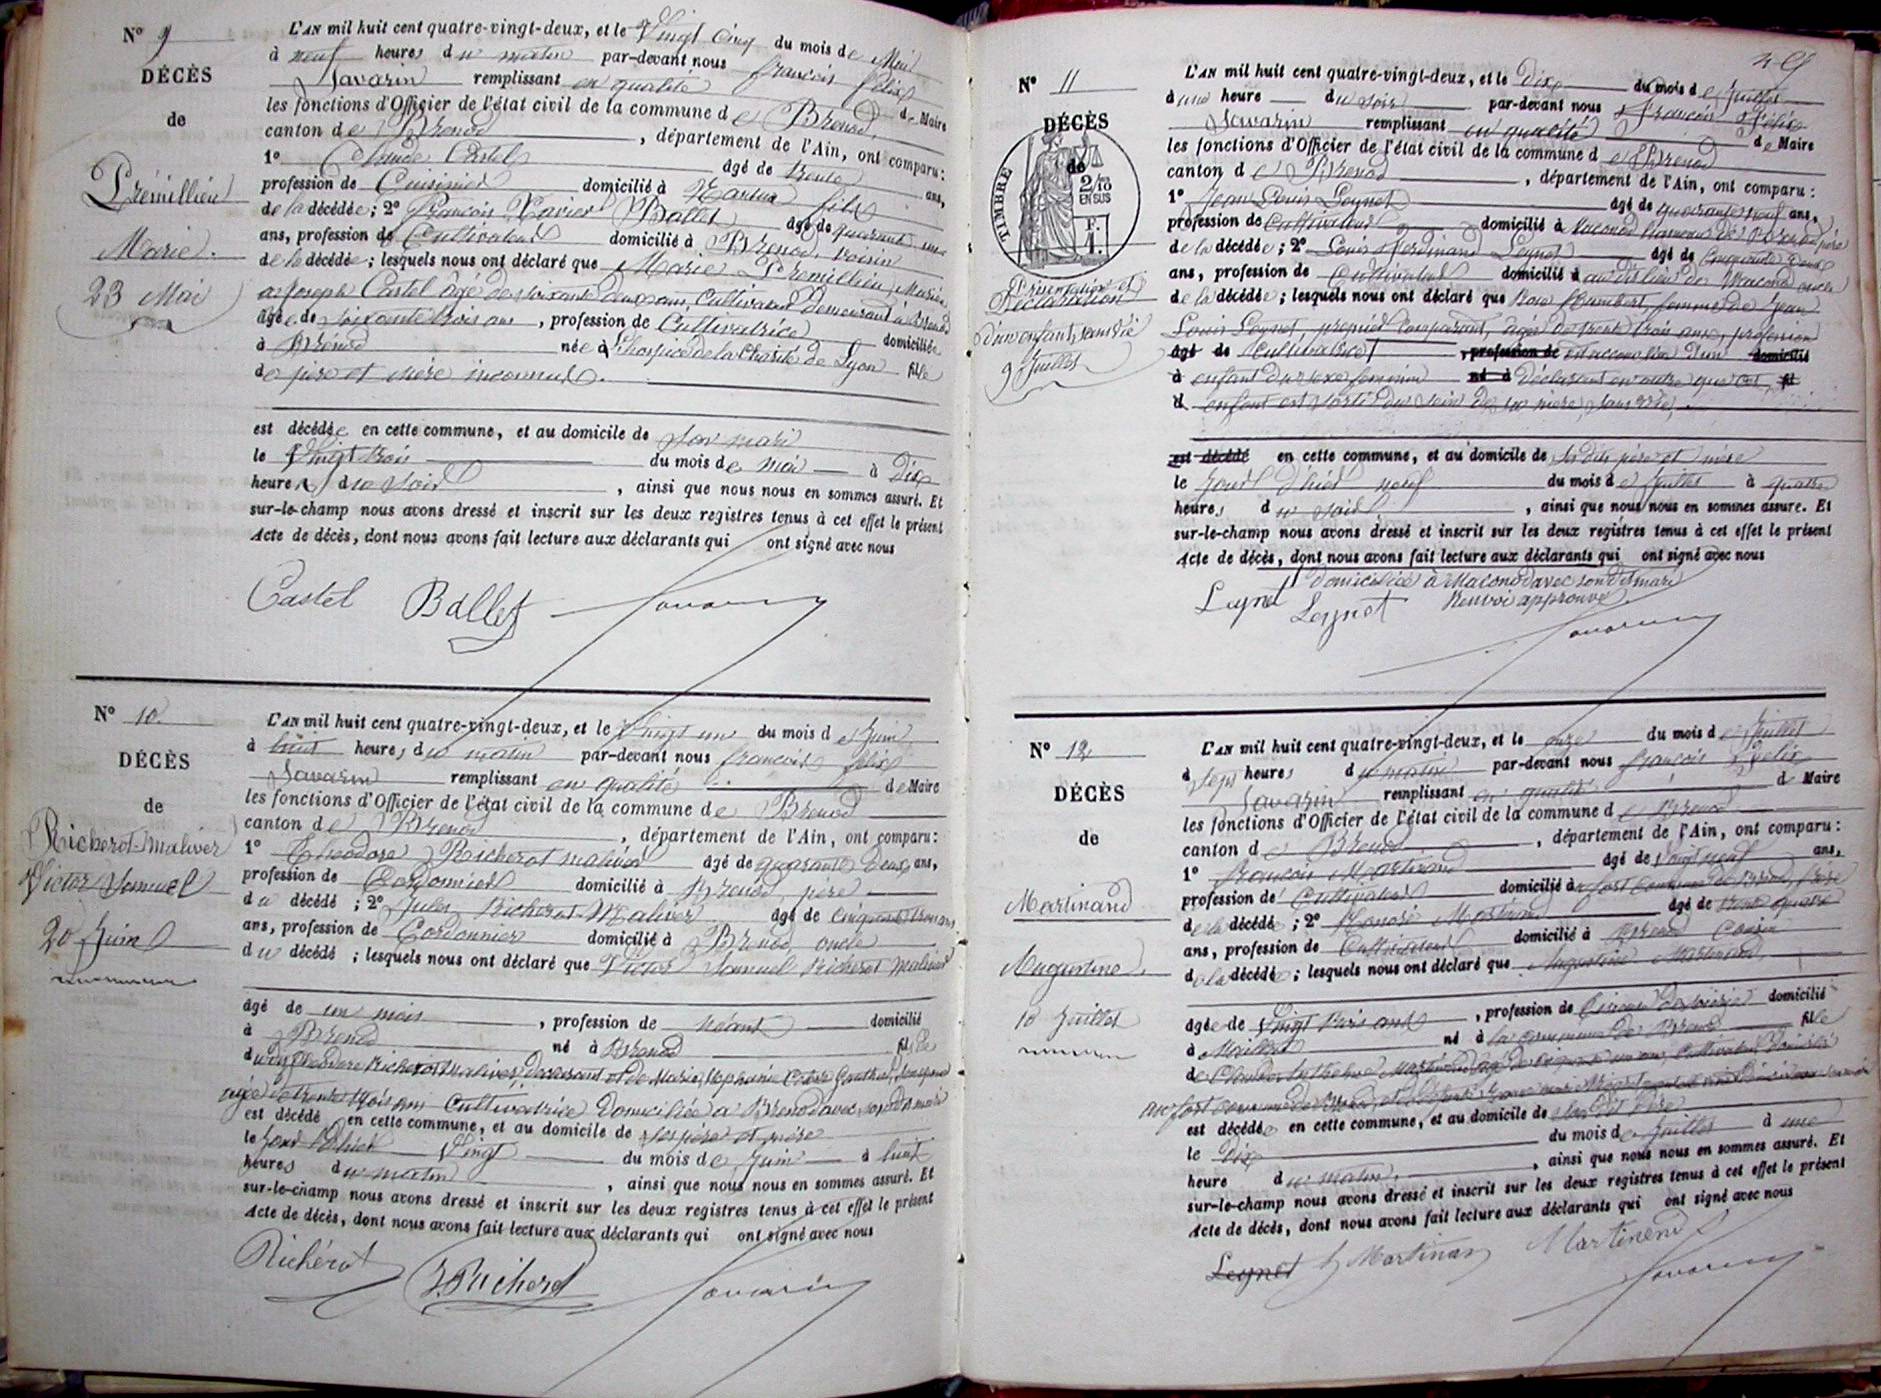 N° 9
DÉCÈS
de
Prémillieu
Marie.
23 Mai
L'AN mil huit cent quatre-vingt-deux, et le Vingt cinq du mois de Mai
à neuf heures du matin par-devant nous françois félix
Savarin remplissant en qualité de Maire
les fonctions d'Officier de l'état civil de la commune de Brenod
canton de Brenod, département de l'Ain, ont comparu:
1° Claude Castel âgé de trente ans,
profession de Cuisinier domicilié à Nantua fils
de la décédée; 2° François Xavier Ballet âgé de quarante un
ans, profession de Cultivateur domicilié à Brenod, voisin
de la décédée; lesquels nous ont déclaré que Marie Prémillieu, Mariée
à Joseph Castel âgé de soixante deux ans, Cultivateur Demeurant à Brenod
âgée de soixante trois ans, profession de Cultivatrice domiciliée
à Brenod née à l'hospice de la Charité de Lyon fille
de père et mère inconnus.
est décédée en cette commune, et au domicile de son mari
le Vingt trois du mois de mai à Dix
heures du soir, ainsi que nous nous en sommes assuré. Et
sur-le-champ nous avons dressé et inscrit sur les deux registres tenus à cet effet le présent
Acte de décès, dont nous avons fait lecture aux déclarants qui ont signé avec nous
Castel Ballet Savarin
N° 10.
DÉCÈS
de
Richerot-Maliver
Victor Samuel
20 Juin
L'AN mil huit cent quatre-vingt-deux, et le Vingt un du mois de Juin
à huit heures du matin par-devant nous françois félix
Savarin remplissant en qualité de Maire
les fonctions d'Officier de l'état civil de la commune de Brenod
canton de Brenod, département de l'Ain, ont comparu:
1° Théodore Richerot maliver âgé de quarante deux ans,
profession de Cordonnier domicilié à Brenod, père
du décédé; 2° Jules Richerot-Maliver âgé de cinquante trois ans
ans, profession de Cordonnier domicilié à Brenod, oncle
du décédé; lesquels nous ont déclaré que Victor Samuel Richerot Maliver
âgé de un mois, profession de Néant domicilié
à Brenod né à Brenod fils de
du dit Théodore Richerot Maliver, déclarant et de Marie Stéphanie
âgée de trente trois ans Cultivatrice Domiciliée à Brenod avec son dit mari
est décédé en cette commune, et au domicile de ses père et mère
le jour d'hier Vingt du mois de Juin à huit
heures du matin, ainsi que nous nous en sommes assuré. Et
sur-le-champ nous avons dressé et inscrit sur les deux registres tenus à cet effet le présent
Acte de décès, dont nous avons fait lecture aux déclarants qui ont signé avec nous
Richérot J. Richerot Savarin
N° 11
DÉCÈS
de
TIMBRE
2/10
EN SUS
F.
1.
Présentation et
Déclaration
d'un enfant sans vie
9 Juillet
L'AN mil huit cent quatre-vingt-deux, et le Dix du mois de Juillet
à une heure du soir par-devant nous François Félix
Savarin remplissant en qualité de Maire
les fonctions d'Officier de l'état civil de la commune de Brenod
canton de Brenod, département de l'Ain, ont comparu:
1° Jean Louis Leynet âgé de quarante neuf ans,
profession de Cultivateur domicilié à Macconod hameau de Brenod père
de la décédée; 2° Louis Ferdinand Leynet âgé de Cinquante Deux
ans, profession de Cultivateur domicilié au dit lieu de Macconod oncle
de la décédée; lesquels nous ont déclaré que Rose Humbert, femme de Jean
Louis Leynet, premier Comparant, âgée de trente trois ans, profession
âgé de Cultivatrice profession de est accouchée d'un domicilié
à enfant du sexe féminin né à Déclarant en outre que cet fil
d enfant est sorti du sein de sa mère, sans vie
est décédé en cette commune, et au domicile de ses dits père et mère
le jour d'hier neuf du mois de Juillet à quatre
heures du soir, ainsi que nous nous en sommes assuré. Et
sur-le-champ nous avons dressé et inscrit sur les deux registres tenus à cet effet le présent
Acte de décès, dont nous avons fait lecture aux déclarants qui ont signé avec nous
domiciliée à Macconod avec son dit mari
Renvoi approuvé
Leynet Leynet Savarin
N° 12
DÉCÈS
de
Martinand
Augustine.
10 Juillet
L'AN mil huit cent quatre-vingt-deux, et le onze du mois de Juillet
à sept heures du matin par-devant nous françois Félix
Savarin remplissant en qualité de Maire
les fonctions d'Officier de l'état civil de la commune de Brenod
canton de Brenod, département de l'Ain, ont comparu:
1° François Martinand âgé de vingt neuf ans,
profession de Cultivateur domicilié à fort commune de Brenod, frère
de la décédée; 2° Honoré Martinand âgé de trente quatre
ans, profession de Cultivateur domicilié à Brenod Cousin
de la décédée; lesquels nous ont déclaré que Augustine Martinand,
âgée de Vingt trois ans, profession de domicilié
à né à la commune de Brenod fille
de Claude Anthelme Martinand âgé de cinquante un ans, Cultivateur Domicilié
au fort commune de Brenod, et
est décédée en cette commune, et au domicile de son dit père
le Dix du mois de Juillet à une
heure du matin, ainsi que nous nous en sommes assuré. Et
sur-le-champ nous avons dressé et inscrit sur les deux registres tenus à cet effet le présent
Acte de décès, dont nous avons fait lecture aux déclarants qui ont signé avec nous
Leynet Martinand Martinend Savarin